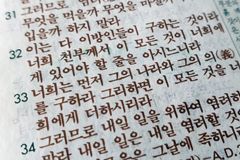 그러므로
무엇을 먹을까 무엇을 마실까
입을까 하지 말라
32 이는 다 이방인들이 구하는 것이라
너희 천부께서 이 모든 것이 너희에
게 있어야 할 줄을 아시느니라
33 너희는 먼저 그의 나라와 그의 의(義)
를 구하라 그리하면 이 모든 것을
희에게 더하시리라
34 그러므로 내일 일을 위하여
말라 내일 일은 내일 염려할
그날에 족하니
A.D.